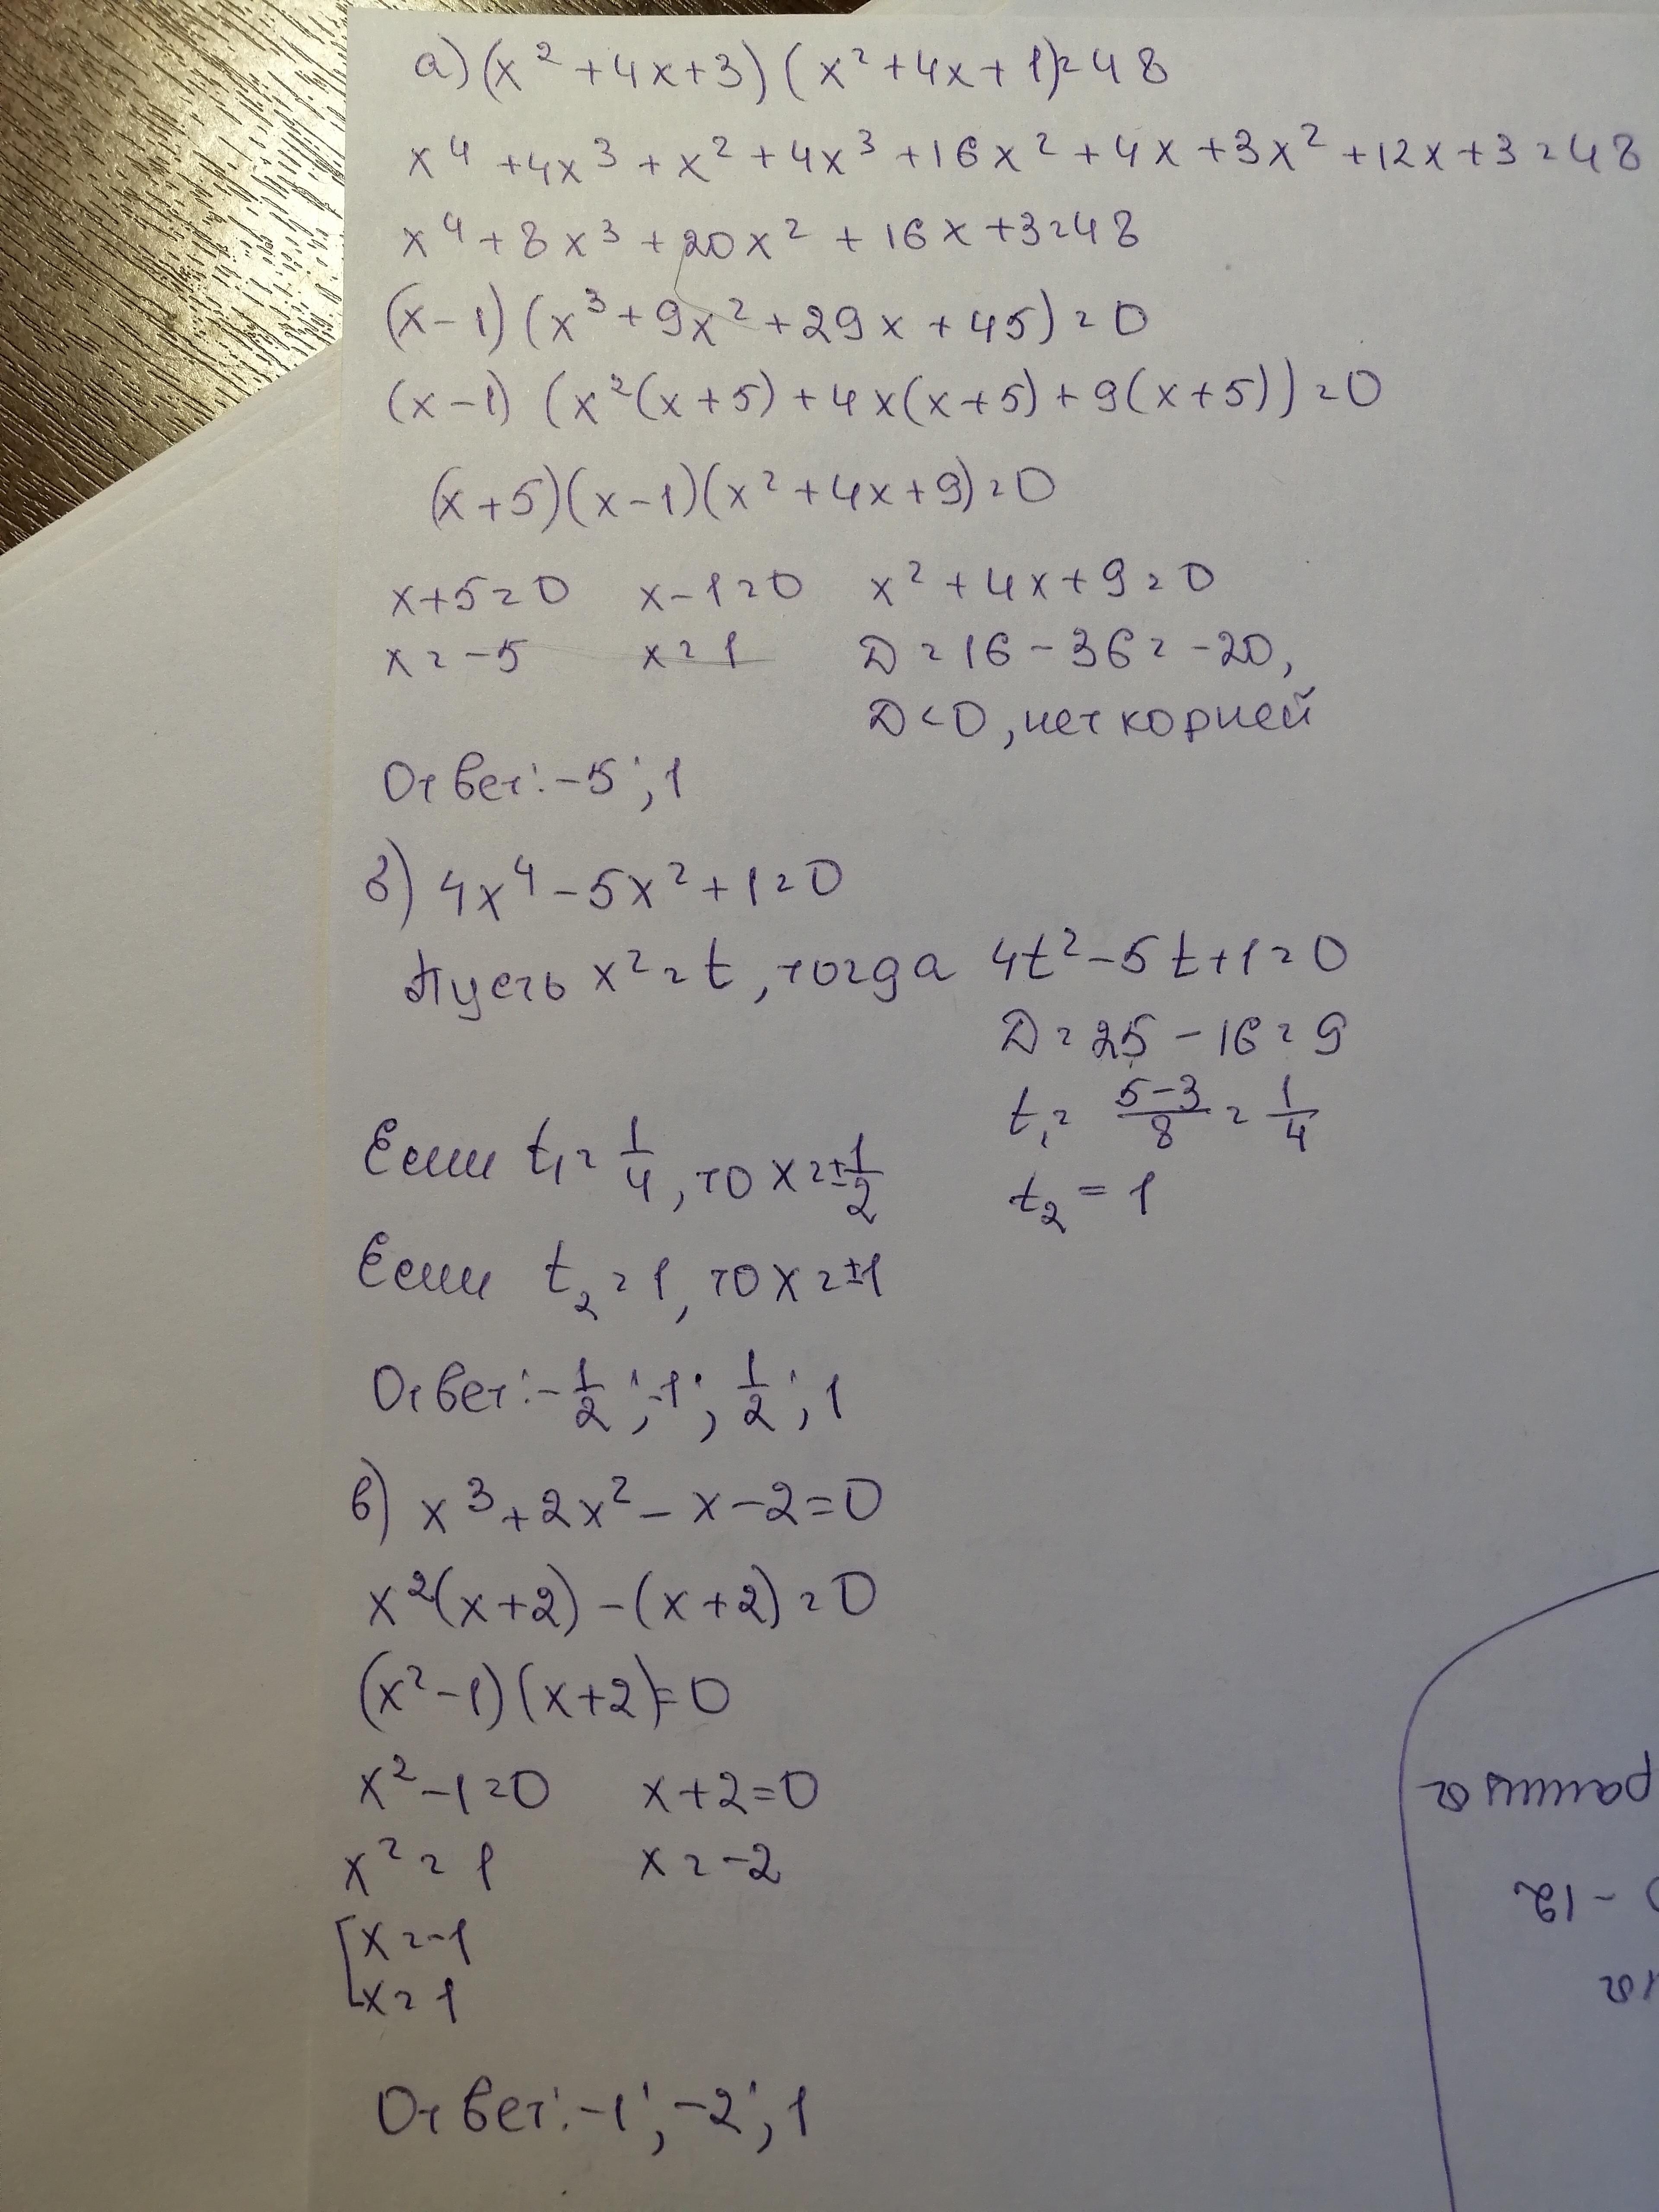 а) (x² + 4x + 3) (x² + 4x + 1) = 48
x⁴ + 4x³ + x² + 4x³ + 16x² + 4x + 3x² + 12x + 3 = 48
x⁴ + 8x³ + 20x² + 16x + 3 = 48
(x - 1) (x³ + 9x² + 29x + 45) = 0
(x - 1) (x²(x + 5) + 4x(x + 5) + 9(x + 5)) = 0
(x + 5)(x - 1)(x² + 4x + 9) = 0
x + 5 = 0 x - 1 = 0 x² + 4x + 9 = 0
x = -5 x = 1 D = 16 - 36 = -20,
D < 0, нет корней
Ответ: -5; 1
б) 4x⁴ - 5x² + 1 = 0
Пусть x² = t, тогда 4t² - 5t + 1 = 0
D = 25 - 16 = 9
t₁ = (5-3)/8 = 1/4
Если t₁ = 1/4, то x = ±1/2
t₂ = 1
Если t₂ = 1, то x = ±1
Ответ: -1/2; -1; 1/2; 1
в) x³ + 2x² - x - 2 = 0
x²(x + 2) - (x + 2) = 0
(x² - 1) (x + 2) = 0
x² - 1 = 0 x + 2 = 0
x² = 1 x = -2
[x = -1
x = 1
Ответ: -1; -2; 1